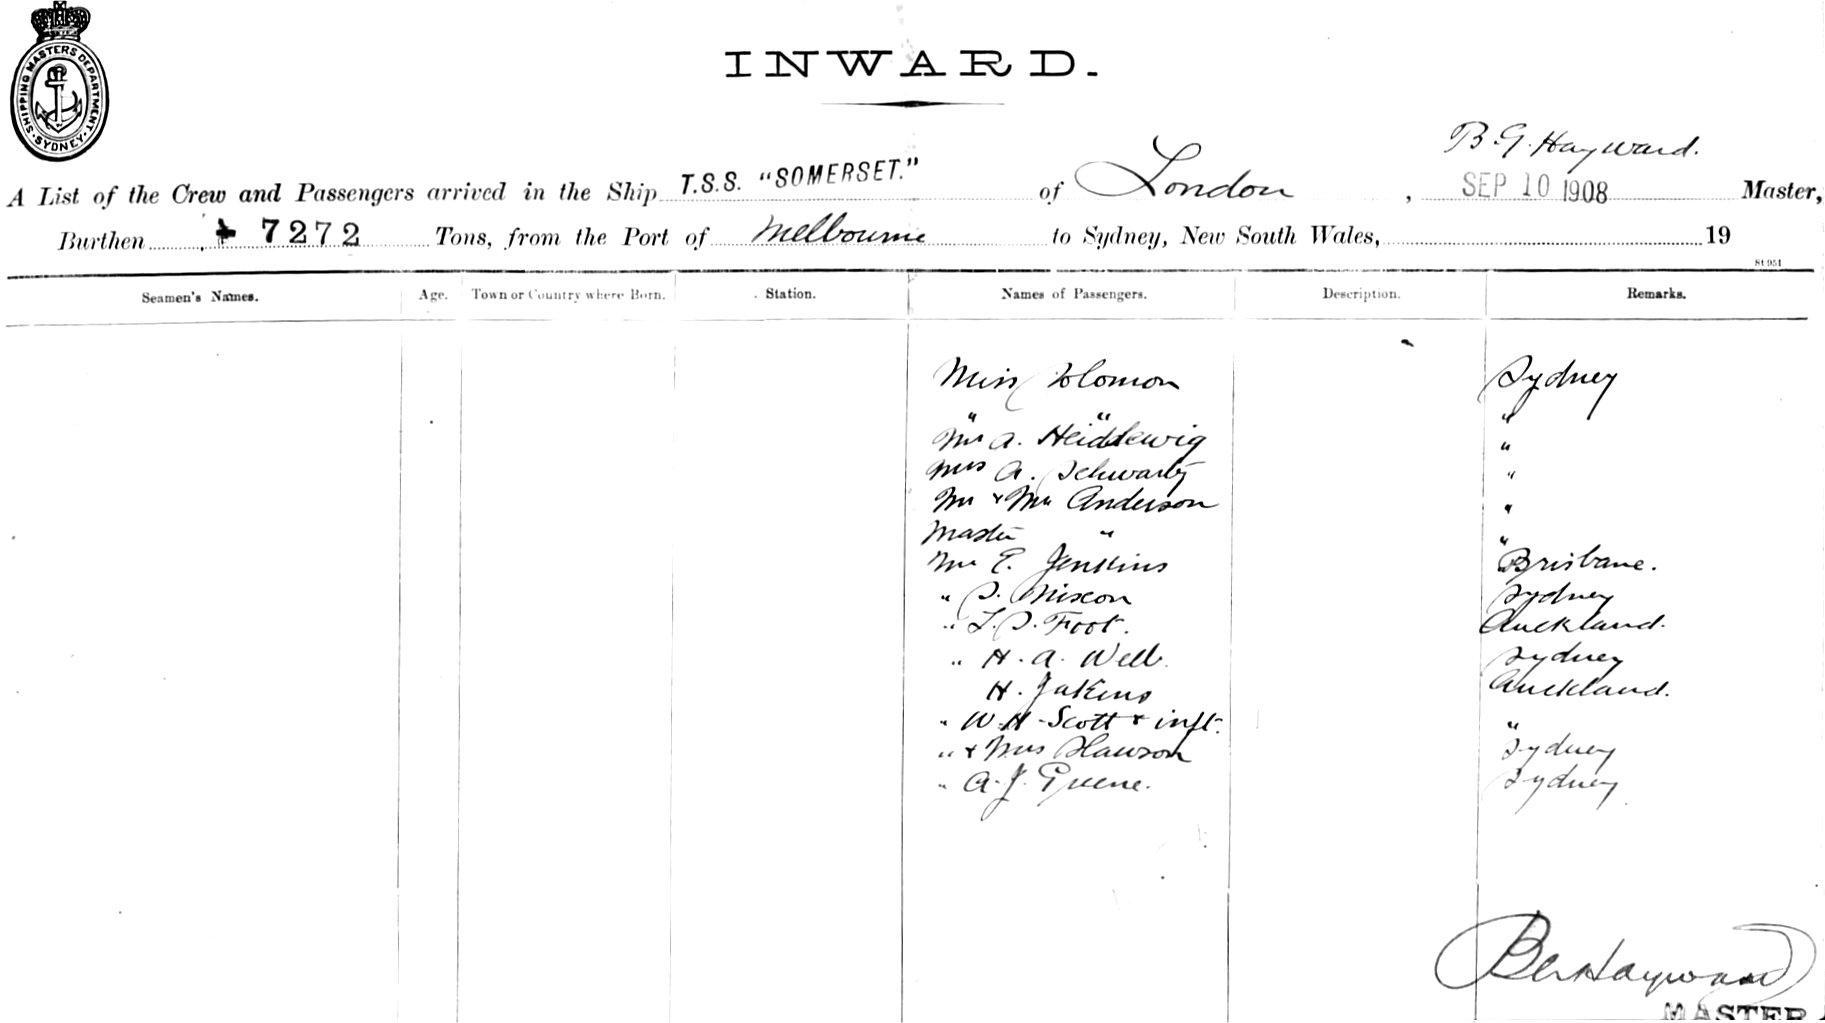 SHIPPING MASTERS DEPARTMENT.
SYDNEY
INWARD.
B. G. Hayward.
A List of the Crew and Passengers arrived in the Ship T.S.S. "SOMERSET." of London, SEP 10 1908 Master,
Burthen 7272 Tons, from the Port of Melbourne to Sydney, New South Wales, 19
St 951
Seamen's Names. Age. Town or Country where Born. Station. Names of Passengers. Description. Remarks.
Miss Solomon Sydney
" " "
Mr A. Heidlewig "
Mrs A. Schwartz "
Mr & Mrs Anderson "
Master " "
Mr E. Jenkins Brisbane.
" S. Nixon Sydney
" L. S. Foot. Auckland.
" H. A. Well Sydney
H. Jakins Auckland.
" W. H. Scott & inft. "
" & Mrs Slawson Sydney
" A. J. Greene. Sydney
B G Hayward
MASTER